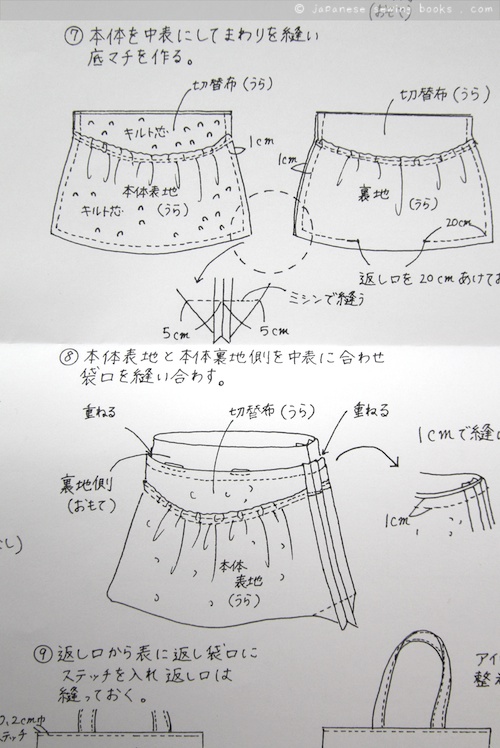 © japanese sewing books . com
(おもて)
⑦ 本体を中表にしてまわりを縫い
底マチを作る。
切替布(うら)
キルト芯
1cm
本体表地
(うら)
キルト芯
切替布(うら)
1cm
裏地
(うら)
20cm
返し口を20cmあけてお
ミシンで縫う
5cm
5cm
⑧ 本体表地と本体裏地側を中表に合わせ
袋口を縫い合わす。
重ねる
切替布(うら)
重ねる
1cmで縫い
裏地側
(おもて)
1cm
本体
表地
(うら)
⑨ 返し口から表に返し袋口に
ステッチを入れ返し口は
縫っておく。
0.2cm巾
ステッチ
アイ
整え